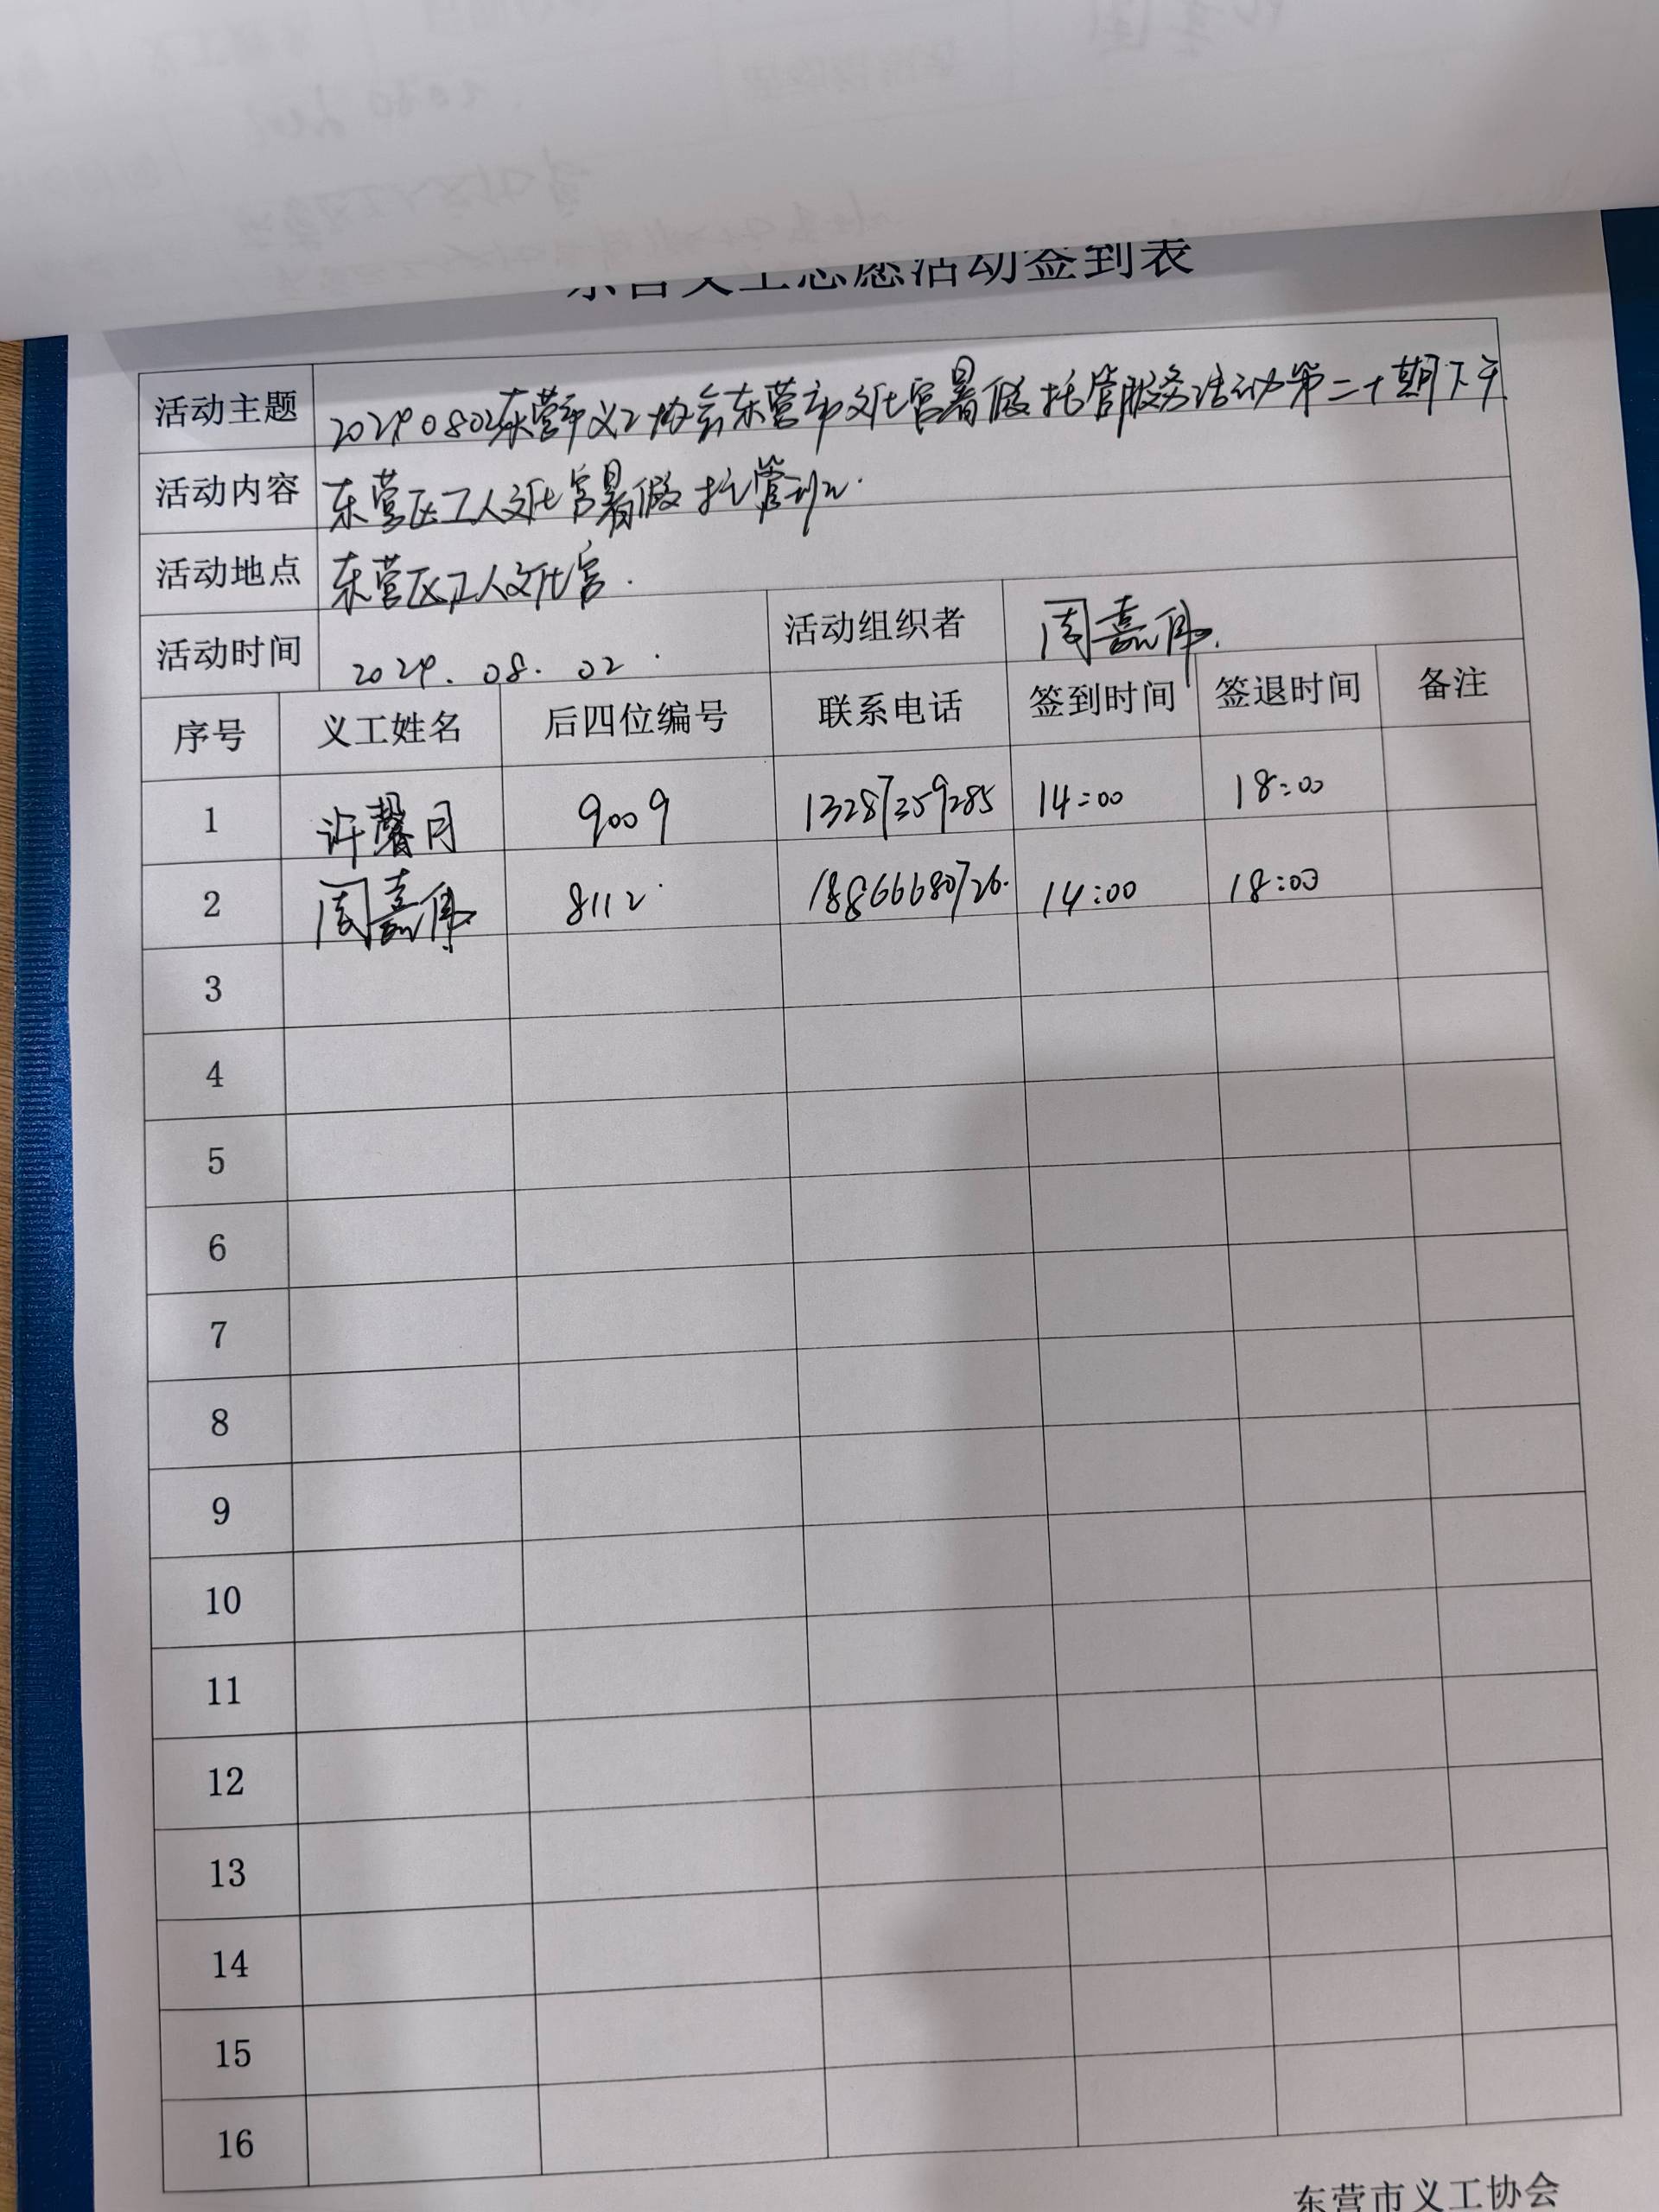 东营义工志愿活动签到表
活动主题 20240802东营市义工协会东营市文化宫暑假托管服务活动第二十期下午
活动内容 东营区工人文化宫暑假托管班.
活动地点 东营区工人文化宫.
活动时间 2024.08.02. 活动组织者 周嘉伟.
序号 义工姓名 后四位编号 联系电话 签到时间 签退时间 备注
1 许馨月 9009 13287359285 14:00 18:00
2 周嘉伟 8112 18866680726. 14:00 18:00
3
4
5
6
7
8
9
10
11
12
13
14
15
16
东营市义工协会